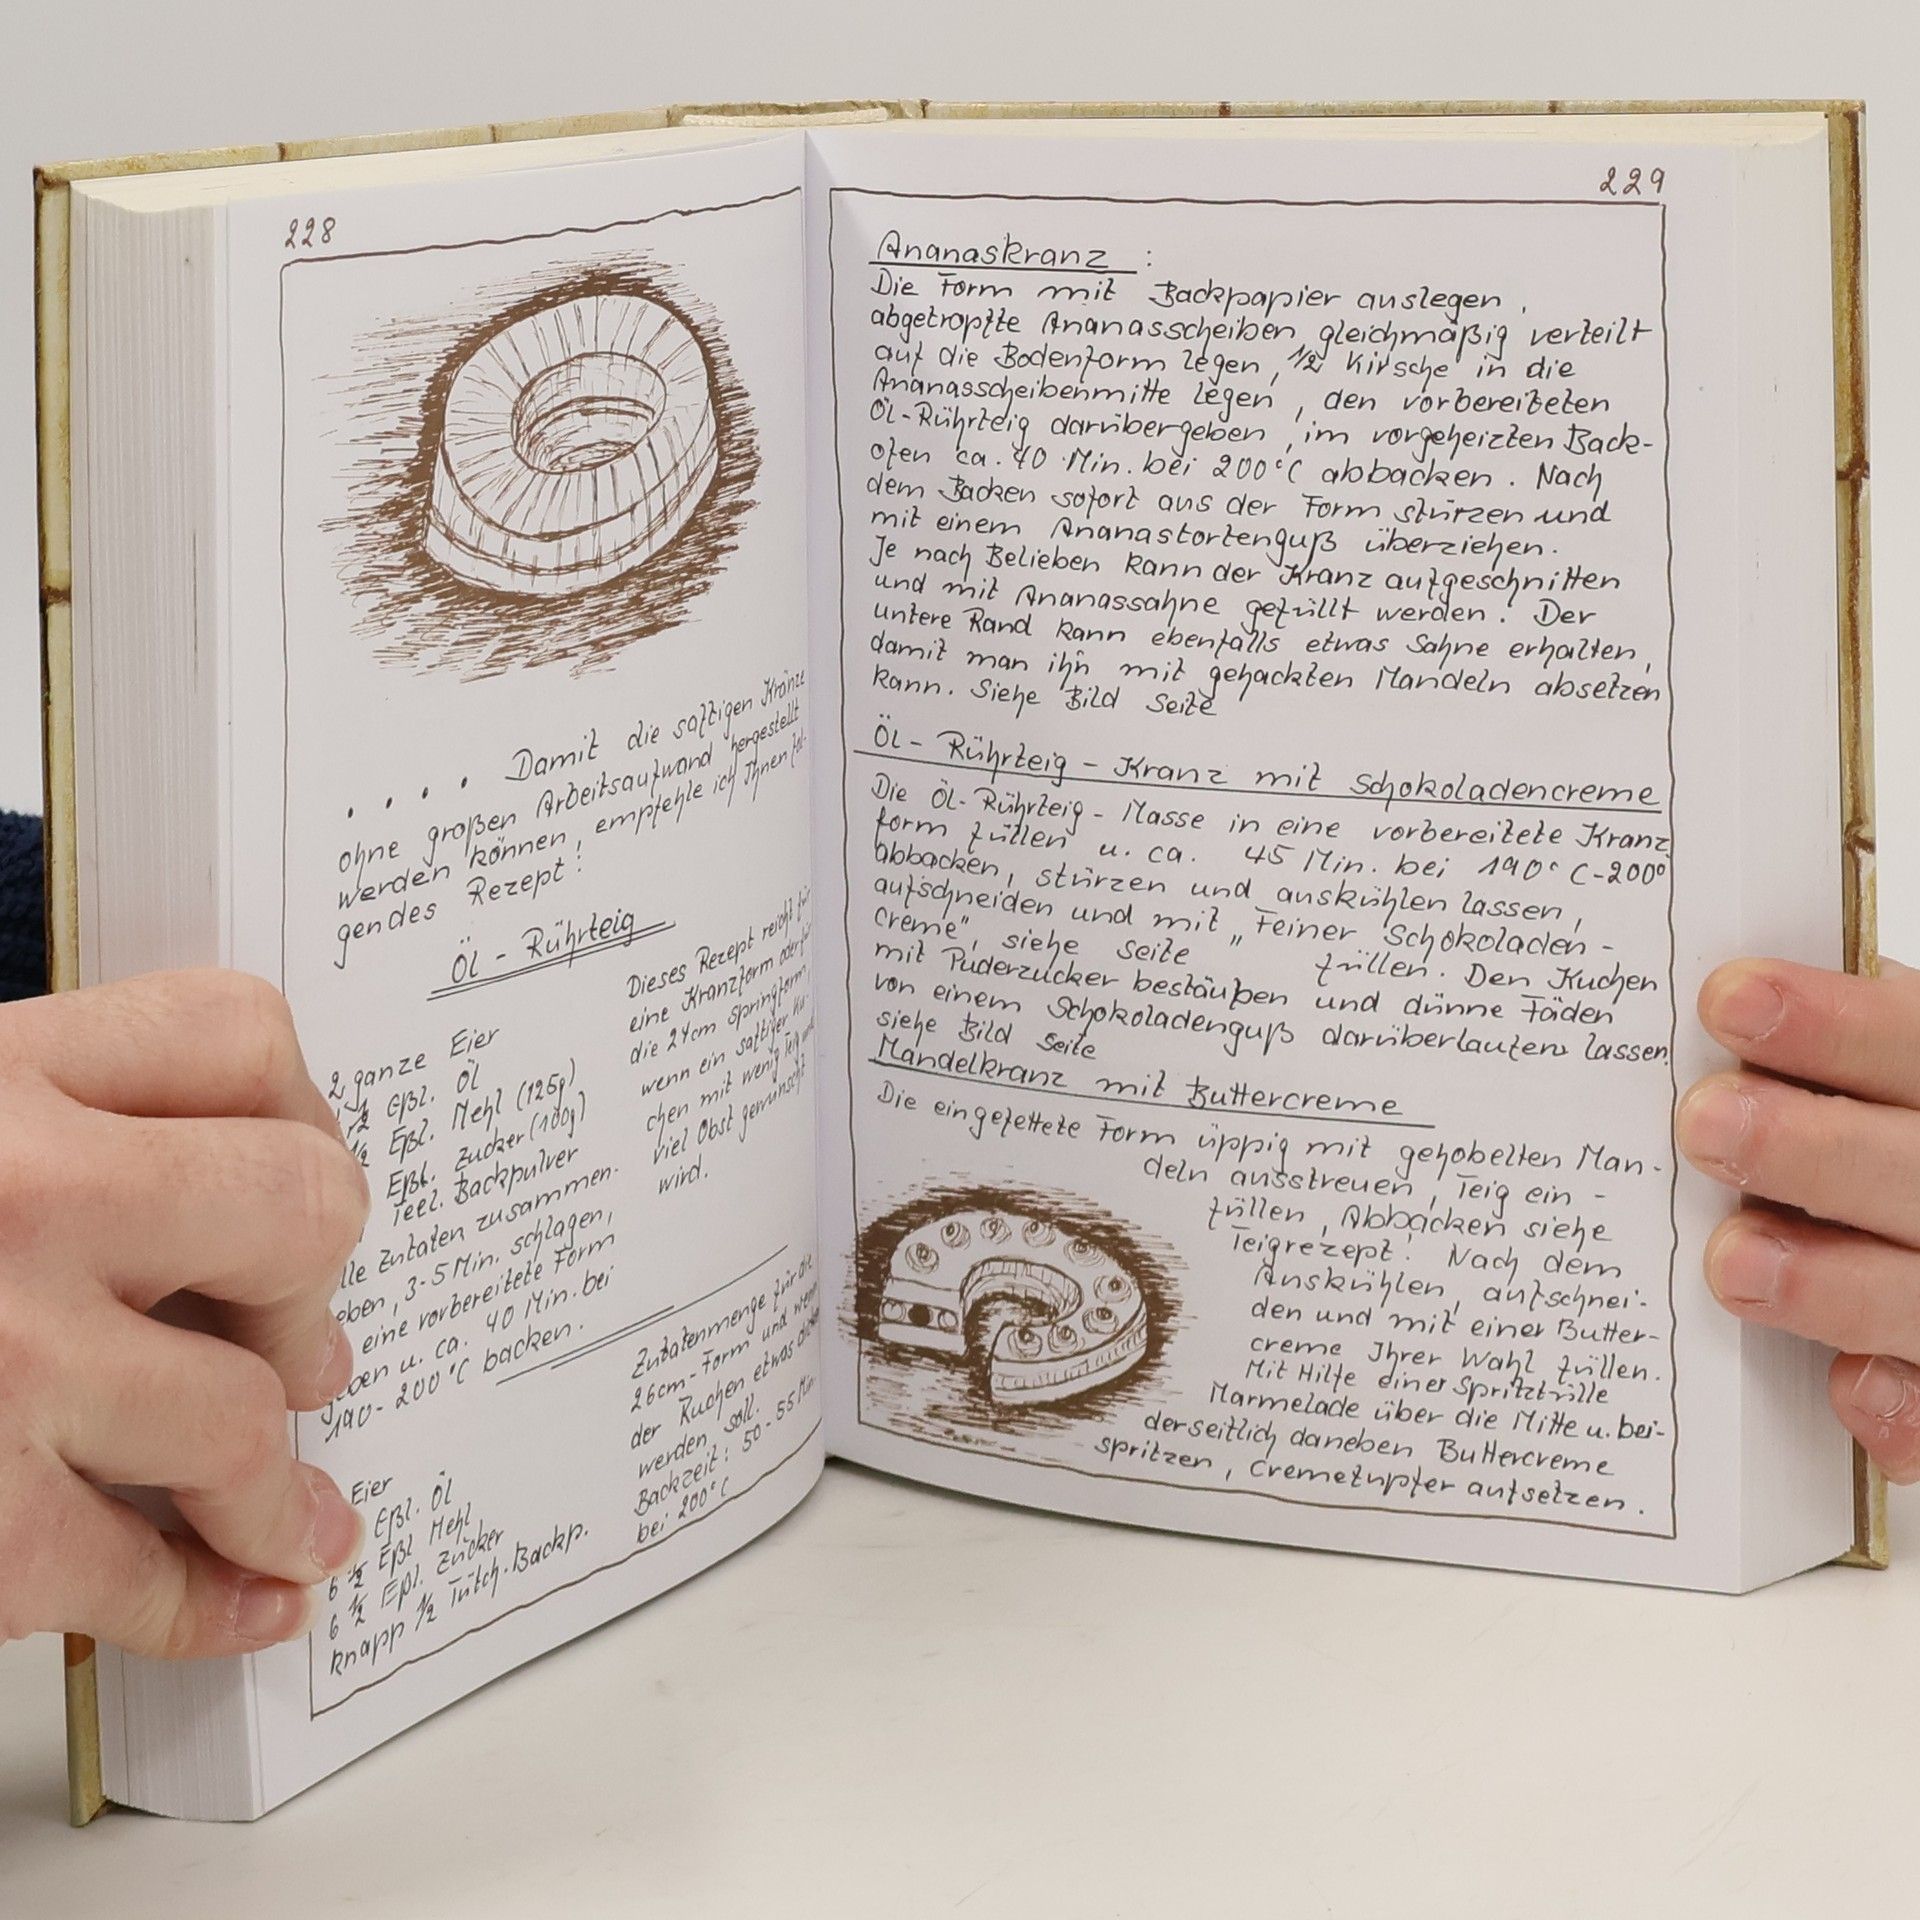 228
. . . . Damit die saftigen Kränze
ohne großen Arbeitsaufwand hergestellt
werden können, empfehle ich Ihnen fol-
gendes Rezept:
Öl - Rührteig
2 ganze Eier
1/2 Eßl. Öl
1/2 Eßl. Mehl (125g)
Eßl. Zucker (100g)
Teel. Backpulver
lle Zutaten zusammen-
eben, 3-5 Min. schlagen,
eine vorbereitete Form
geben u. ca. 40 Min. bei
190- 200°C backen.
Dieses Rezept reicht für
eine Kranzform oder für
die 24cm Springform,
wenn ein saftiger Ku-
chen mit wenig Teig und
viel Obst gewünscht
wird.
Eier
Eßl. Öl
6 1/2 Eßl Mehl
6 1/2 Eßl. Zucker
knapp 1/2 Tütch. Backp.
Zutatenmenge für die
26cm-Form und wenn
der Kuchen etwas
werden soll.
Backzeit: 50-55 Min.
bei 200°C
229
Ananaskranz :
Die Form mit Backpapier auslegen,
abgetropfte Ananasscheiben gleichmäßig verteilt
auf die Bodenform legen, 1/2 Kirsche in die
Ananasscheibenmitte legen, den vorbereiteten
Öl-Rührteig darübergeben, im vorgeheizten Back-
ofen ca. 40 Min. bei 200°C abbacken. Nach
dem Backen sofort aus der Form stürzen und
mit einem Ananastortenguß überziehen.
Je nach Belieben kann der Kranz aufgeschnitten
und mit Ananassahne gefüllt werden. Der
untere Rand kann ebenfalls etwas Sahne erhalten,
damit man ihn mit gehackten Mandeln absetzen
kann. Siehe Bild Seite
Öl - Rührteig - Kranz mit Schokoladencreme
Die Öl-Rührteig - Masse in eine vorbereitete Kranz
form füllen u. ca. 45 Min. bei 190°C-200°
abbacken, stürzen und auskühlen lassen,
aufschneiden und mit „Feiner Schokoladen-
creme", siehe Seite füllen. Den Kuchen
mit Puderzucker bestäußen und dünne Fäden
von einem Schokoladenguß darüberlaufen lassen.
siehe Bild Seite
Mandelkranz mit Buttercreme
Die eingefettete Form üppig mit gehobelten Man-
deln ausstreuen, Teig ein-
füllen, Abbacken siehe
Teigrezept. Nach dem
Auskühlen, aufschnei-
den und mit einer Butter-
creme Ihrer Wahl füllen.
Mit Hilfe einer Spritztülle
Marmelade über die Mitte u. bei-
derseitlich daneben Buttercreme
spritzen, Cremetupfer aufsetzen.